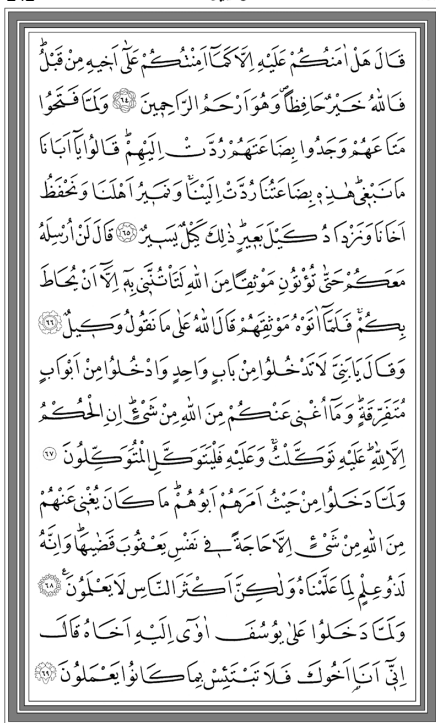 قَالَ هَلْ اٰمَنُكُمْ عَلَيْهِ اِلَّا كَمَٓا اَمِنْتُكُمْ عَلٰٓى اَخ۪يهِ مِنْ قَبْلُۜ
فَاللّٰهُ خَيْرٌ حَافِظاًۖ وَهُوَ اَرْحَمُ الرَّاحِم۪ينَ ﴿٦٤﴾ وَلَمَّا فَتَحُوا
مَتَاعَهُمْ وَجَدُوا بِضَاعَتَهُمْ رُدَّتْ اِلَيْهِمْۜ قَالُوا يَٓا اَبَانَا
مَا نَبْغ۪يۜ هٰذِه۪ بِضَاعَتُنَا رُدَّتْ اِلَيْنَاۚ وَنَم۪يرُ اَهْلَنَا وَنَحْفَظُ
اَخَانَا وَنَزْدَادُ كَيْلَ بَع۪يرٍۜ ذٰلِكَ كَيْلٌ يَس۪يرٌ ﴿٦٥﴾ قَالَ لَنْ اُرْسِلَهُ
مَعَكُمْ حَتّٰى تُؤْتُونِ مَوْثِقاً مِنَ اللّٰهِ لَتَأْتُنَّن۪ي بِه۪ٓ اِلَّٓا اَنْ يُحَاطَ
بِكُمْۚ فَلَمَّٓا اٰتَوْهُ مَوْثِقَهُمْ قَالَ اللّٰهُ عَلٰى مَا نَقُولُ وَك۪يلٌ ﴿٦٦﴾
وَقَالَ يَا بَنِيَّ لَا تَدْخُلُوا مِنْ بَابٍ وَاحِدٍ وَادْخُلُوا مِنْ اَبْوَابٍ
مُتَفَرِّقَةٍۜ وَمَٓا اُغْن۪ي عَنْكُمْ مِنَ اللّٰهِ مِنْ شَيْءٍۜ اِنِ الْحُكْمُ
اِلَّا لِلّٰهِۜ عَلَيْهِ تَوَكَّلْتُۚ وَعَلَيْهِ فَلْيَتَوَكَّلِ الْمُتَوَكِّلُونَ ﴿٦٧﴾
وَلَمَّا دَخَلُوا مِنْ حَيْثُ اَمَرَهُمْ اَبُوهُمْۜ مَا كَانَ يُغْن۪ي عَنْهُمْ
مِنَ اللّٰهِ مِنْ شَيْءٍ اِلَّا حَاجَةً ف۪ي نَفْسِ يَعْقُوبَ قَضٰيهَاۜ وَاِنَّهُ
لَذُو عِلْمٍ لِمَا عَلَّمْنَاهُ وَلٰكِنَّ اَكْثَرَ النَّاسِ لَا يَعْلَمُونَ۟ ﴿٦٨﴾
وَلَمَّا دَخَلُوا عَلٰى يُوسُفَ اٰوٰٓى اِلَيْهِ اَخَاهُ قَالَ
اِنّ۪ٓي اَنَا۬ اَخُوكَ فَلَا تَبْتَئِسْ بِمَا كَانُوا يَعْمَلُونَ ﴿٦٩﴾